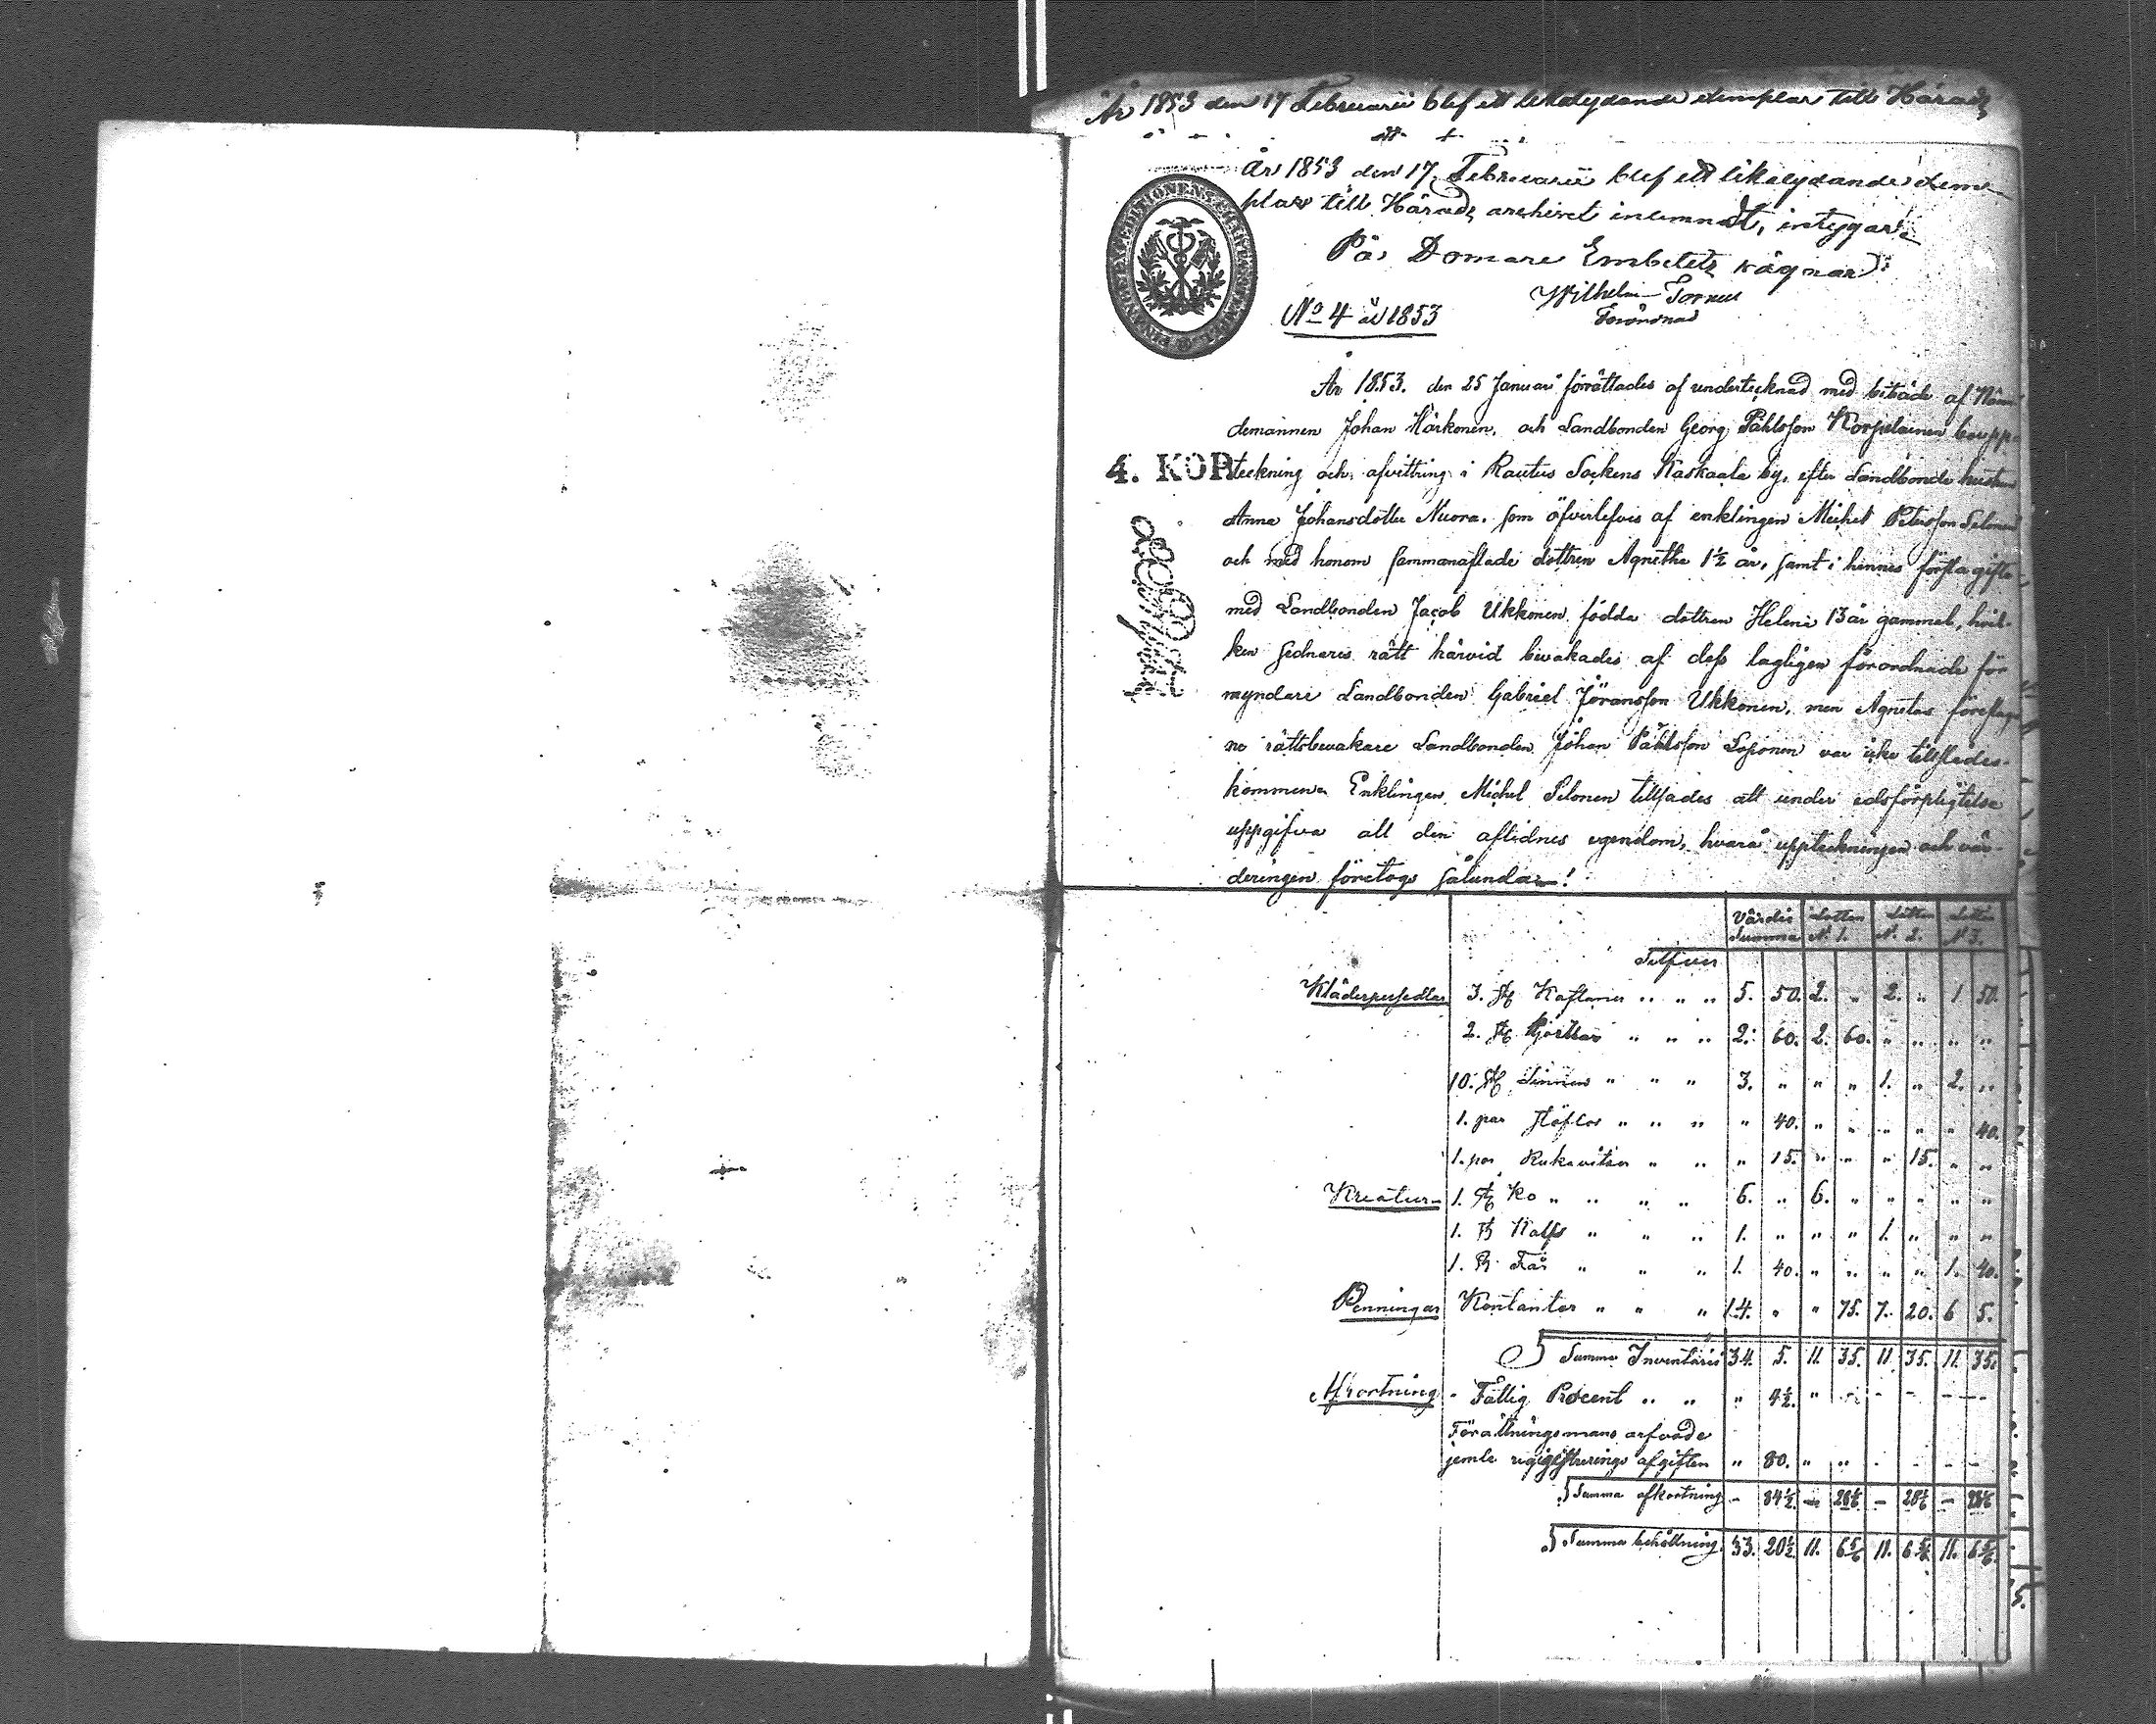 År 1853 den 17 Februarii blef ett likalydande exemplar till Härads
År 1853 den 17 Februarii blef ett likalydande exem-
plar till Härads archivet inlemnadt, intygar.
På Domare Embetets vägnar:
Wilhelm
Förordnad
No 4 år 1853
År 1853. den 25 Januari förrättades af undertecknad med biträde af Nämn-
demannen Johan Härkönen, och Landbonden Georg Påhlsson Korpelainen boupp-
4. KOP
teckning och afvittring i Rautus Sockens Raskaala by, efter Landbonde hustrun
Anna Johansdotter Nuora, som öfverlefves af enklingen Michel Petersson
och med honom sammanaflade dottren Agnetha 1½ år, samt i hennes förra gifte
med Landbonden Jacob Ukkonen födda dottren Helena 13 år gammal, hvil-
ken sednares rätt härvid bevakades af dess lagligen förordnade för
myndare Landbonden Gabriel Jöransson Ukkonen, men Agnetas föreslag-
ne rättsbevakare Landbonden Johan Påhlsson Loponen var icke tillstädes-
kommen. Enklingen Michel tillsades att under edsförpligtelse
uppgifva all den aflidnes egendom, hvarå uppteckningen och vär-
deringen företogs sålunda!
Värdie Lotten Lotten Lotten
Summa N 1. N. 2. N 3.
Silfver
Klädespersedlar 3. st Kaftaner 5. 50. 2. " 2. " 1 50.
2. st Kjortlar 2. 60. 2. 60. " " " "
10. st Linnen 3. " " " 1. " 2. "
1. par Stöflor " 40. " " " " " 40.
1. par Rukavitser " 15. " " " 15. " "
Kreatur 1. st Ko 6. " 6. " " " " "
1. st Kalf 1. " " " 1. " " "
1. st Får 1. 40. " " " " 1. 40.
Penningar Kontanter 14. " " 75. 7. 20. 6 5.
Summa Inventarii 34. 5. 11. 35. 11 35. 11. 35.
Afkortning Fattig Procent " 4½. " - - - - -
Förrättningsmans arfvode
jemte registrerings afgiften " 80. " " - - - -
Summa afkortning - 84½. - 28⅙ - 28⅙ - 28⅙
Summa behållning 33. 20½ 11. 6⅚ 11. 6⅚ 11. 6⅚